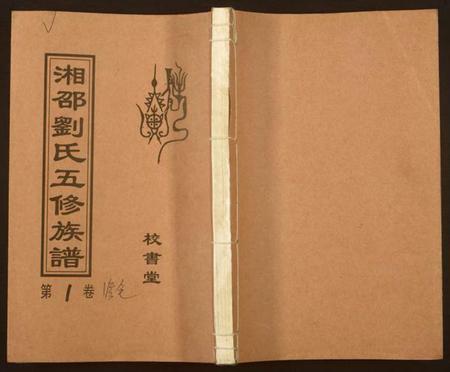 湘邵劉氏五修族譜
校書堂
第1卷